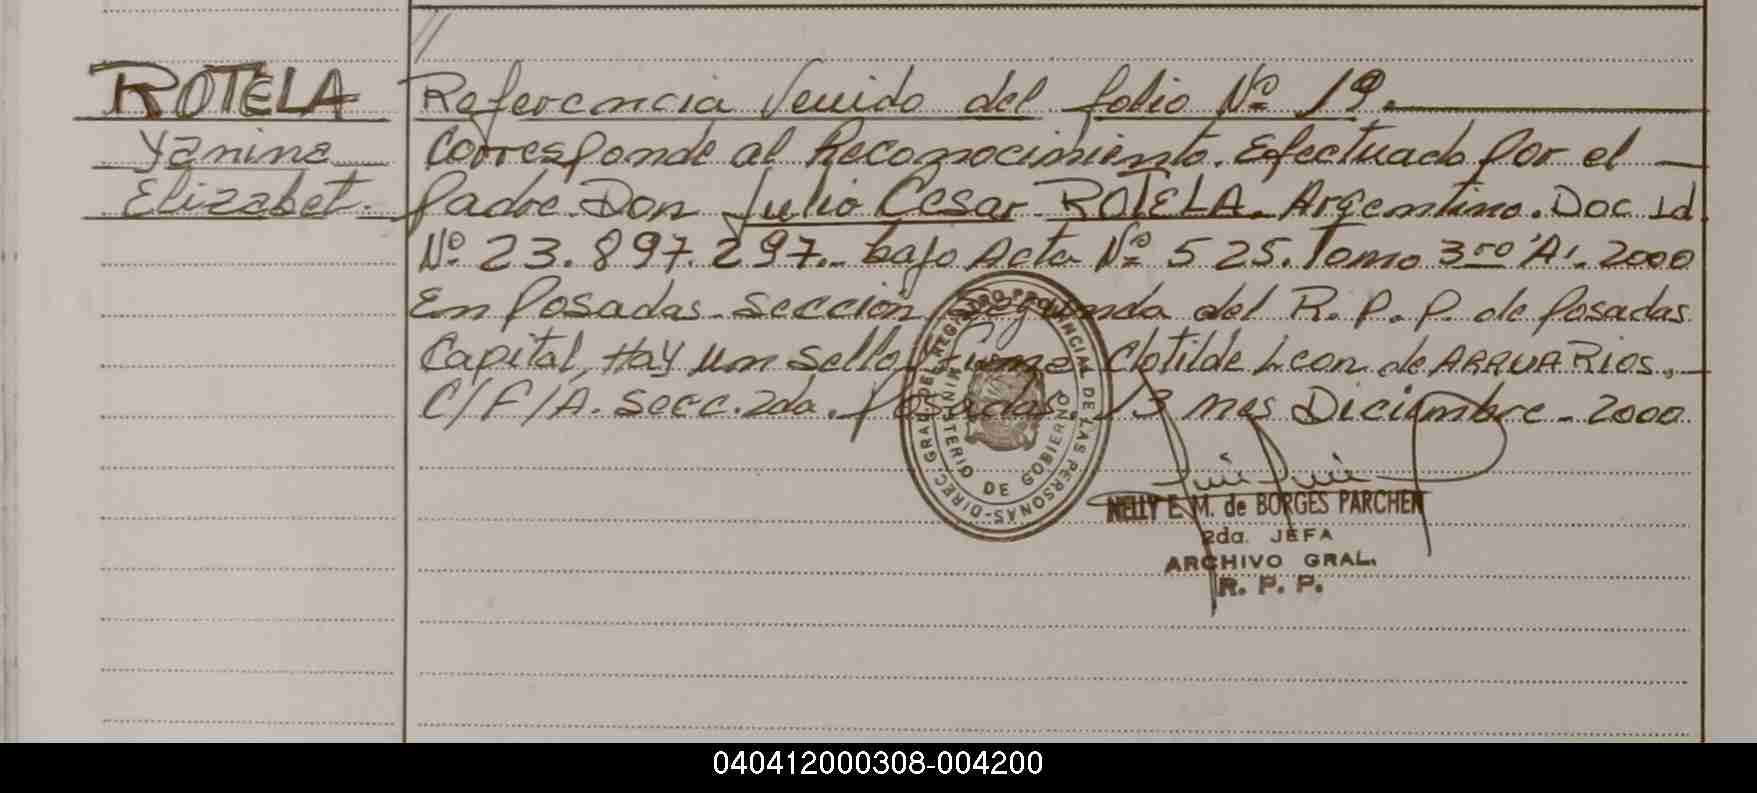 ROTELA
Yanina
Elizabet.
Referencia Venido del folio Nº 19.
Corresponde al Reconocimiento. Efectuado por el
padre. Don Julio Cesar ROTELA. Argentino. Doc Id
Nº 23.897.297. bajo Acta Nº 525. Tomo 3ro "A". 2000
En Posadas. Sección Segunda del R. P. P. de Posadas
Capital, Hay un sello firma Clotilde Leon de
C/F/A. Secc. 2da. Posadas 13 mes Diciembre - 2000
DIREC. GRAL. DEL REGISTRO PROVINCIAL DE LAS PERSONAS
MINISTERIO DE GOBIERNO
NELLY E. M. de BORGES PARCHEN
2da. JEFA
ARCHIVO GRAL.
R. P. P.
040412000308-004200